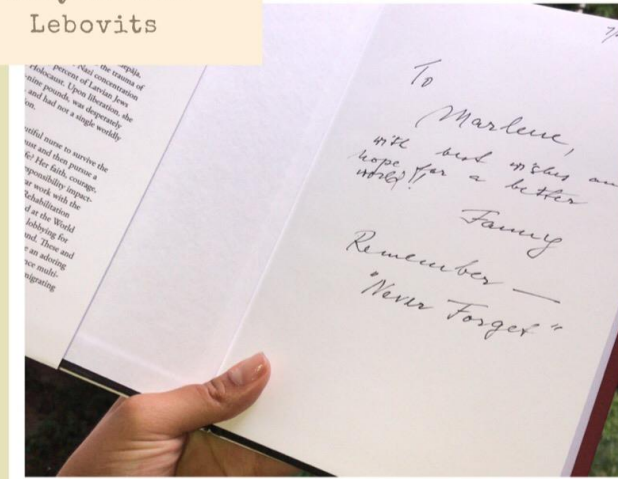 Lebovits
Liepāja,
the trauma of
Nazi concentration
percent of Latvian Jews
Holocaust. Upon liberation, she
nine pounds, was desperately
and had not a single worldly
utiful nurse to survive the
ust and then pursue a
fe! Her faith, courage,
sponsibility impact-
at work with the
Rehabilitation
d at the World
lobbying for
und. These and
e an adoring
nce multi-
migrating
To
Marlene,
with best wishes an
hope for a better
world!!
Fanny
Remember —
"Never Forget"